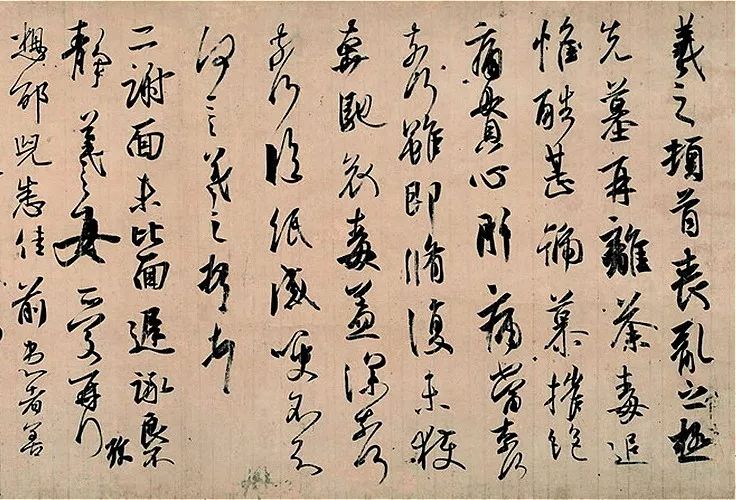 羲之頓首喪亂之極
先墓再離荼毒追
惟酷甚號慕摧絕
痛貫心肝痛當奈何
奈何雖即脩復未獲
奔馳哀毒益深奈何
奈何臨紙感哽不知
何言羲之頓首
二謝面未比面遲詠良不
靜羲之女愛再拜
想邵兒悉佳前患者善